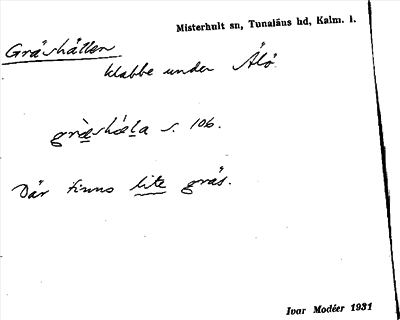 Misterhult sn, Tunaläns hd, Kalm. l.
Gräshällen
klabbe under Älö.
græ̀shǽla s. 106.
Där finns lite gräs.
Ivar Modéer 1931